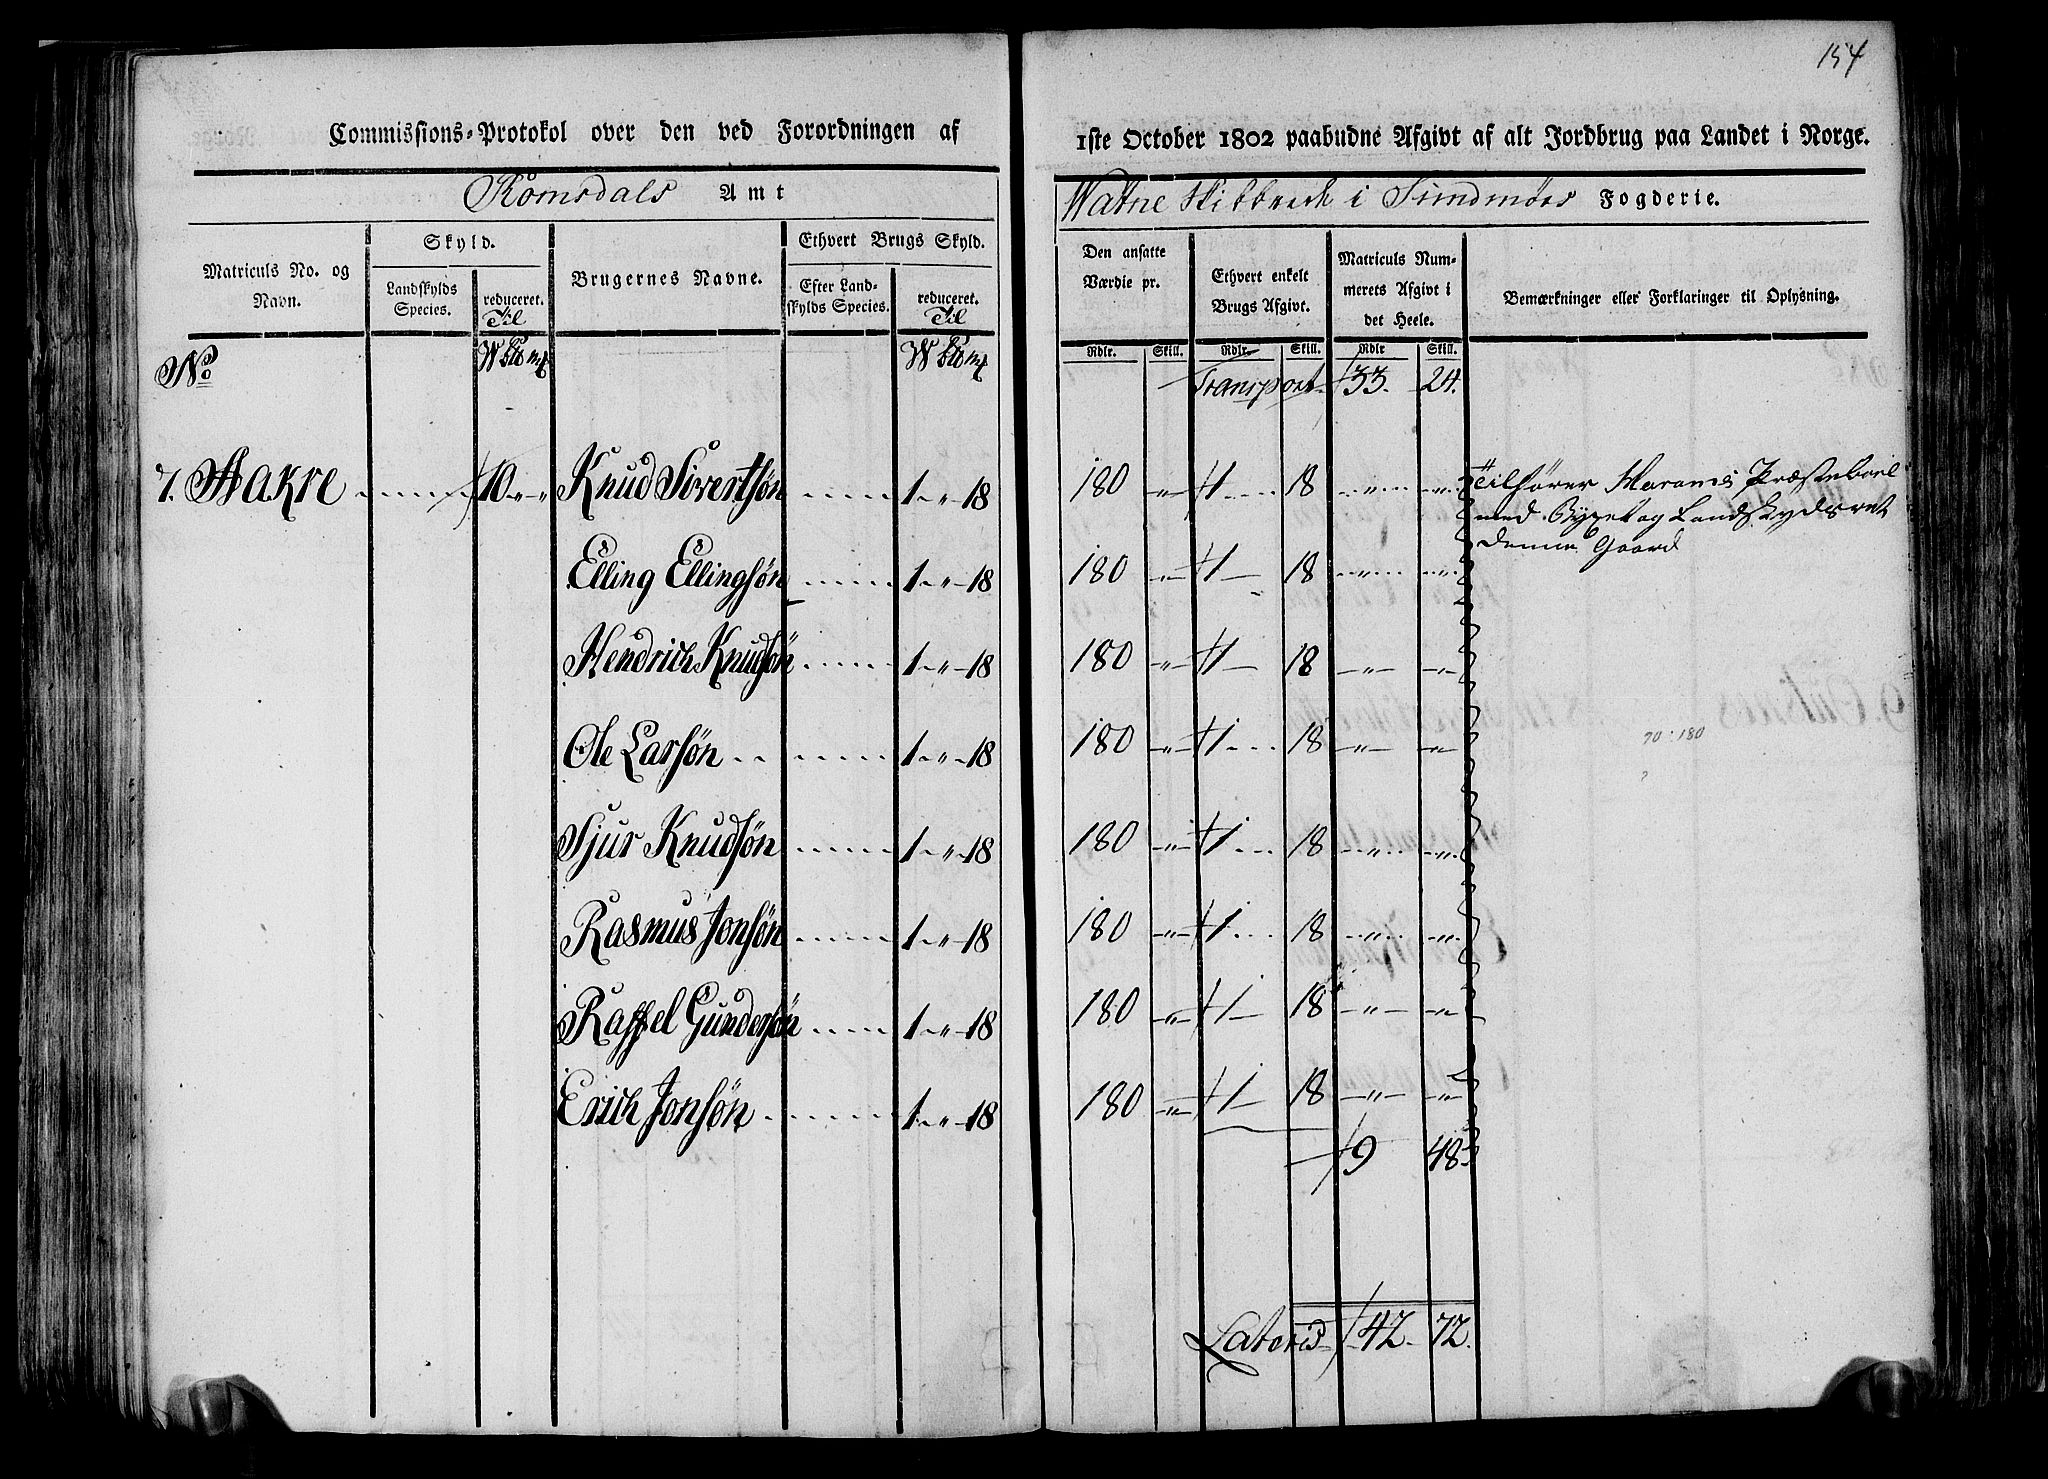 154
Commissions-Protokol over den ved Forordningen af 1ste October 1802 paabudne Afgivt af alt Jordbrug paa Landet i Norge.
Romsdals Amt Watne Skibbrede i Sundmöers Fogderie.
Matriculs No. og Navn. Skyld. Landskylds Species. reduceret. Til Brugernes Navne. Ethvert Brugs Skyld. Efter Landskylds Species. reduceret. Til Den ansatte Værdie pr. Ethvert enkelt Brugs Afgivt. Matriculs Nummerets Afgivt i det Heele. Bemærkninger eller Forklaringer til Oplysning.
Rdlr. Skill. Rdlr. Skill. Rdlr Skill.
No W Pd mk W Pd mk Transport 33. 24.
7. Aakre 10 „ „ Knud Sivertsøn 1 „ 18 180 „ 1 18 „ „ Tilhører Harams Præsteboel
med Bygsel og Landskyldsret
denne Gaard
Elling Ellingsøn 1 „ 18 180 „ 1 18 „ „
Hendrich Knudsøn 1 „ 18 180 „ 1 18 „ „
Ole Larsøn 1 „ 18 180 „ 1 18 „ „
70 : 180
?
Sjur Knudsøn 1 „ 18 180 „ 1 18 „ „
Rasmus Jonsøn 1 „ 18 180 „ 1 18 „ „
Raffel Gundersøn 1 „ 18 180 „ 1 18 „ „
Erich Jonsøn 1 „ 18 180 „ 1 18 „ „
9 48
Lateris 42. 72.